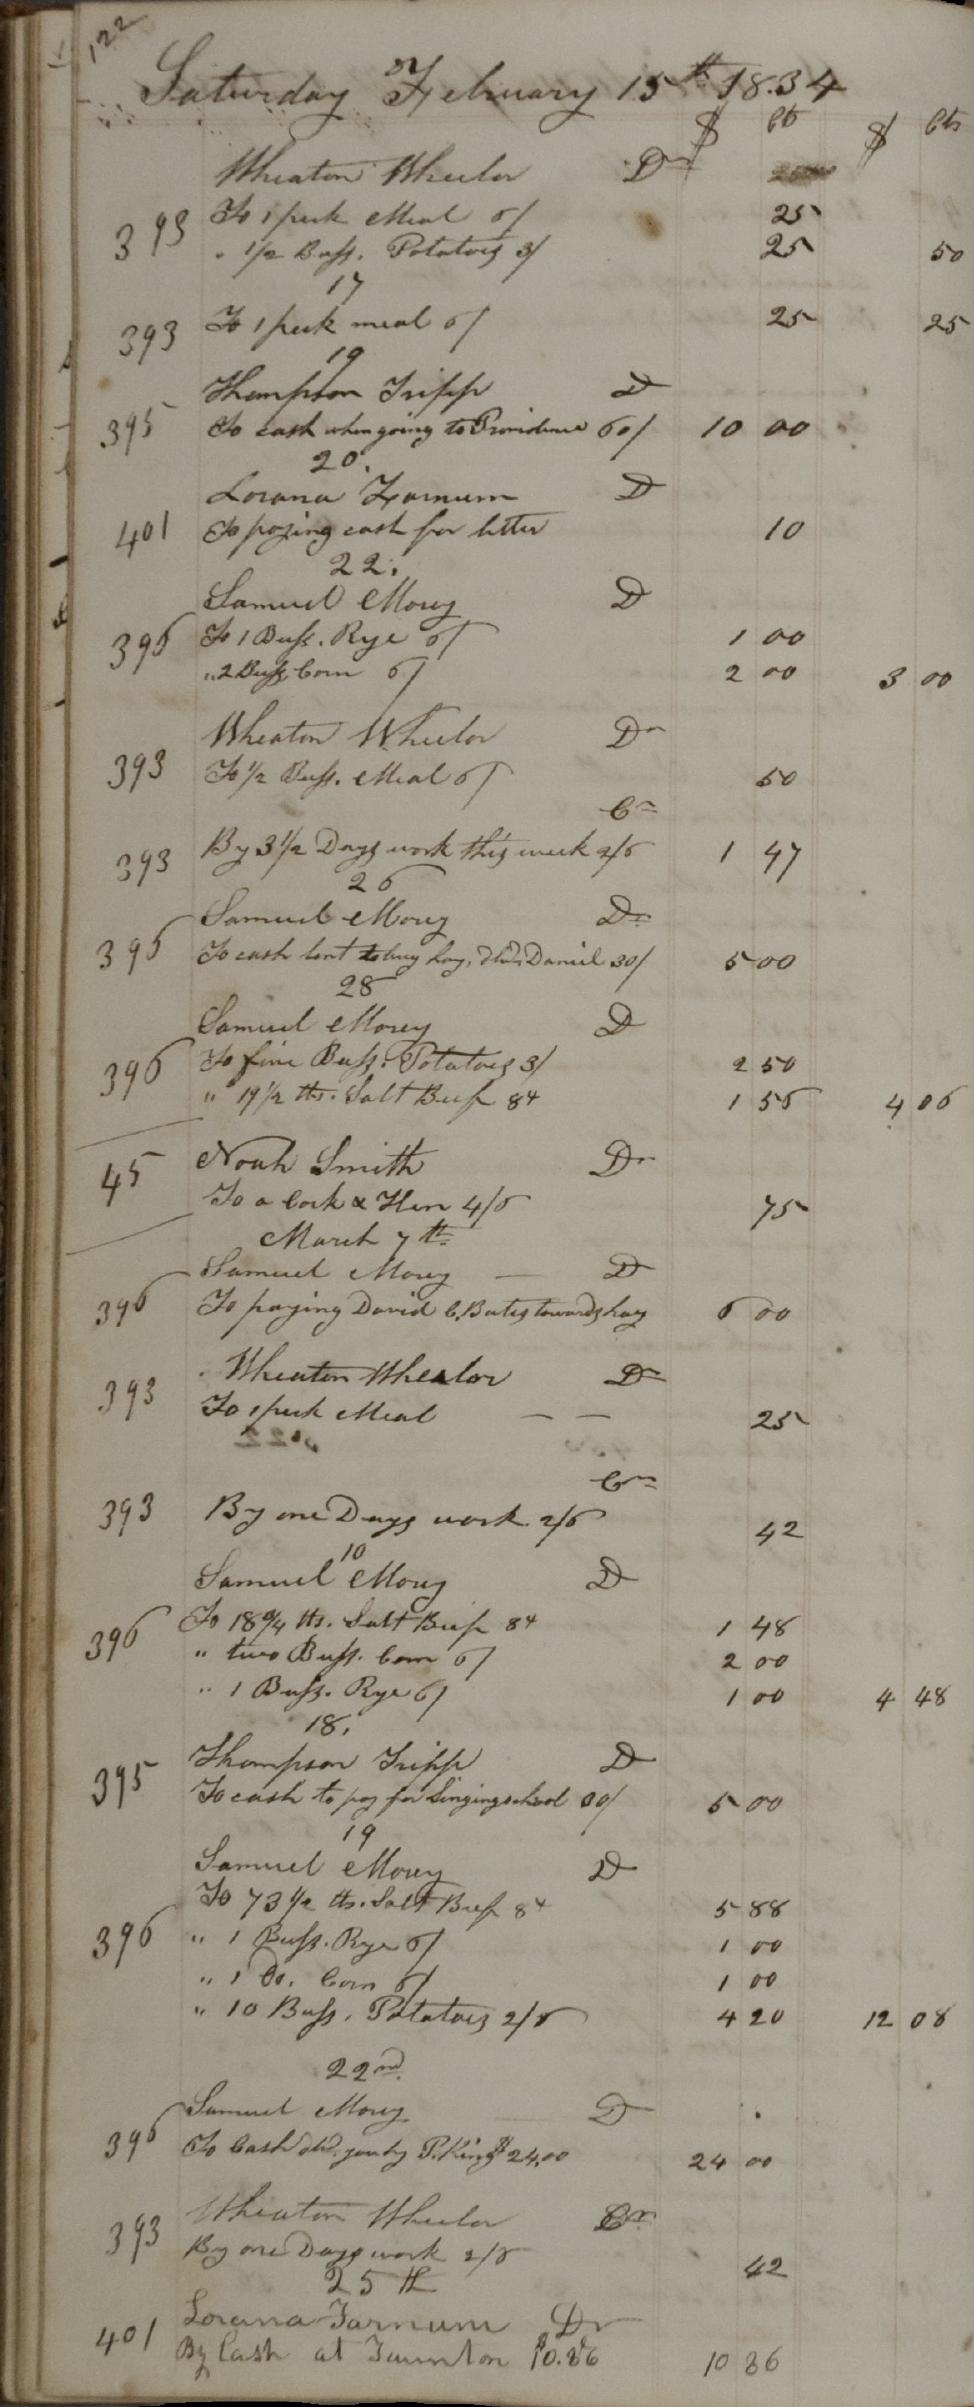 122
Saturday February 15th 1834
$ cts $ Cts
Wheaton Wheelor Dr
393 To 1 peck Meal 6/ 25
" 1/2 Buss. Potatoes 3/ 25 50
17
393 To 1 peck meal 6/ 25 25
19
Thompson Tripp D
395 To cash when going to Providence 60/ 10 00
20.
Lorana Farnum D
401 To paying cash for letter 10
22.
Samuel Mory D
396 To 1 Buss. Rye 6/ 1 00
" 2 Buss. Corn 6/ 2 00 3 00
Wheaton Wheelor Dr
393 To 1/2 Buss. Meal 6/ 50
Cr
393 By 3 1/2 Days work this week 2/6 1 47
26
Samuel Mory Dr
396 To cash lent to buy hay, dld. Daniel 30/ 5 00
28
Samuel Morey D
396 To five Buss. Potatoes 3/ 2 50
" 19 1/2 tts. Salt Beef 8 cts 1 56 4 06
Noah Smith Dr
45 To a Cock & Hen 4/6 75
March 7th
Samuel Mory — D
396 To paying David C. Bates towards hay 6 00
Wheaton Wheelor Dr
393 To 1 peck Meal — — 25
Cr
393 By one Days work 2/6 42
10
Samuel Mory D
396 To 18 2/4 tts. Salt Beef 8 cts 1 48
" two Buss. Corn 6/ 2 00
" 1 Buss. Rye 6/ 1 00 4 48
18.
Thompson Tripp D
395 To cash to pay for Singing school 30/ 5 00
19
Samuel Morey D
To 73 1/2 tts. Salt Beef 8 cts 5 88
396 " 1 Buss. Rye 6/ 1 00
" 1 Do. Corn 6/ 1 00
" 10 Buss. Potatoes 2/6 4 20 12 08
22nd
Samuel Mory D
396 To Cash dld. you by P. King $24.00 24 00
Wheaton Wheelor Cr
393 By one Days work 2/6 42
25th
Lorana Farnum Dr
401 By Cash at Taunton $10.86 10 86